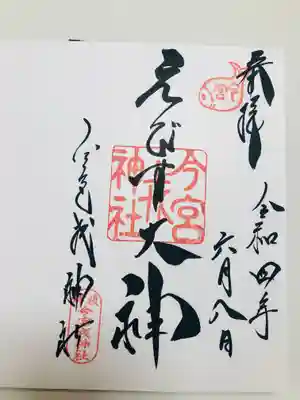 奉拝
令和四年
六月八日
えびす大神
今宮
神社
今宮戎神社